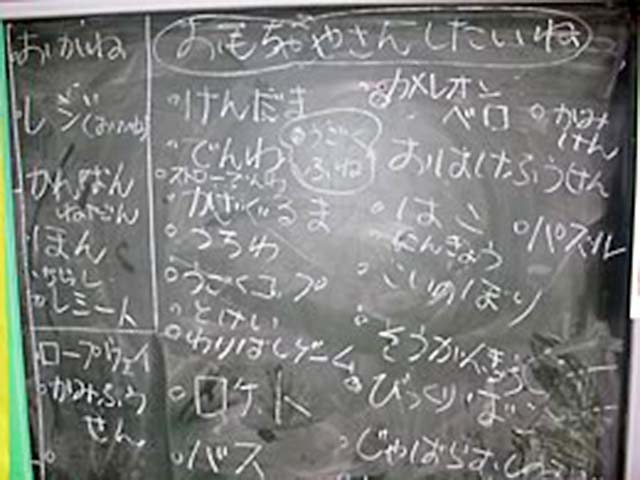 おかね
レジ(おかね)
かんばん
ねだん
ほん
ちらし
ロープウェイ
かみふう
せん
おもちゃやさんしたいね
けんだま
でんわ
うごく
ふね
ストローでんわ
かざぐるま
うちわ
うごくコップ
とけい
わりばしゲーム
ロケット
バス
カメレオン
ベロ
かみ
けん
おばけふうせん
はこ
にんぎょう
パズル
こいのぼり
そうがんきょう
びっくりばこ